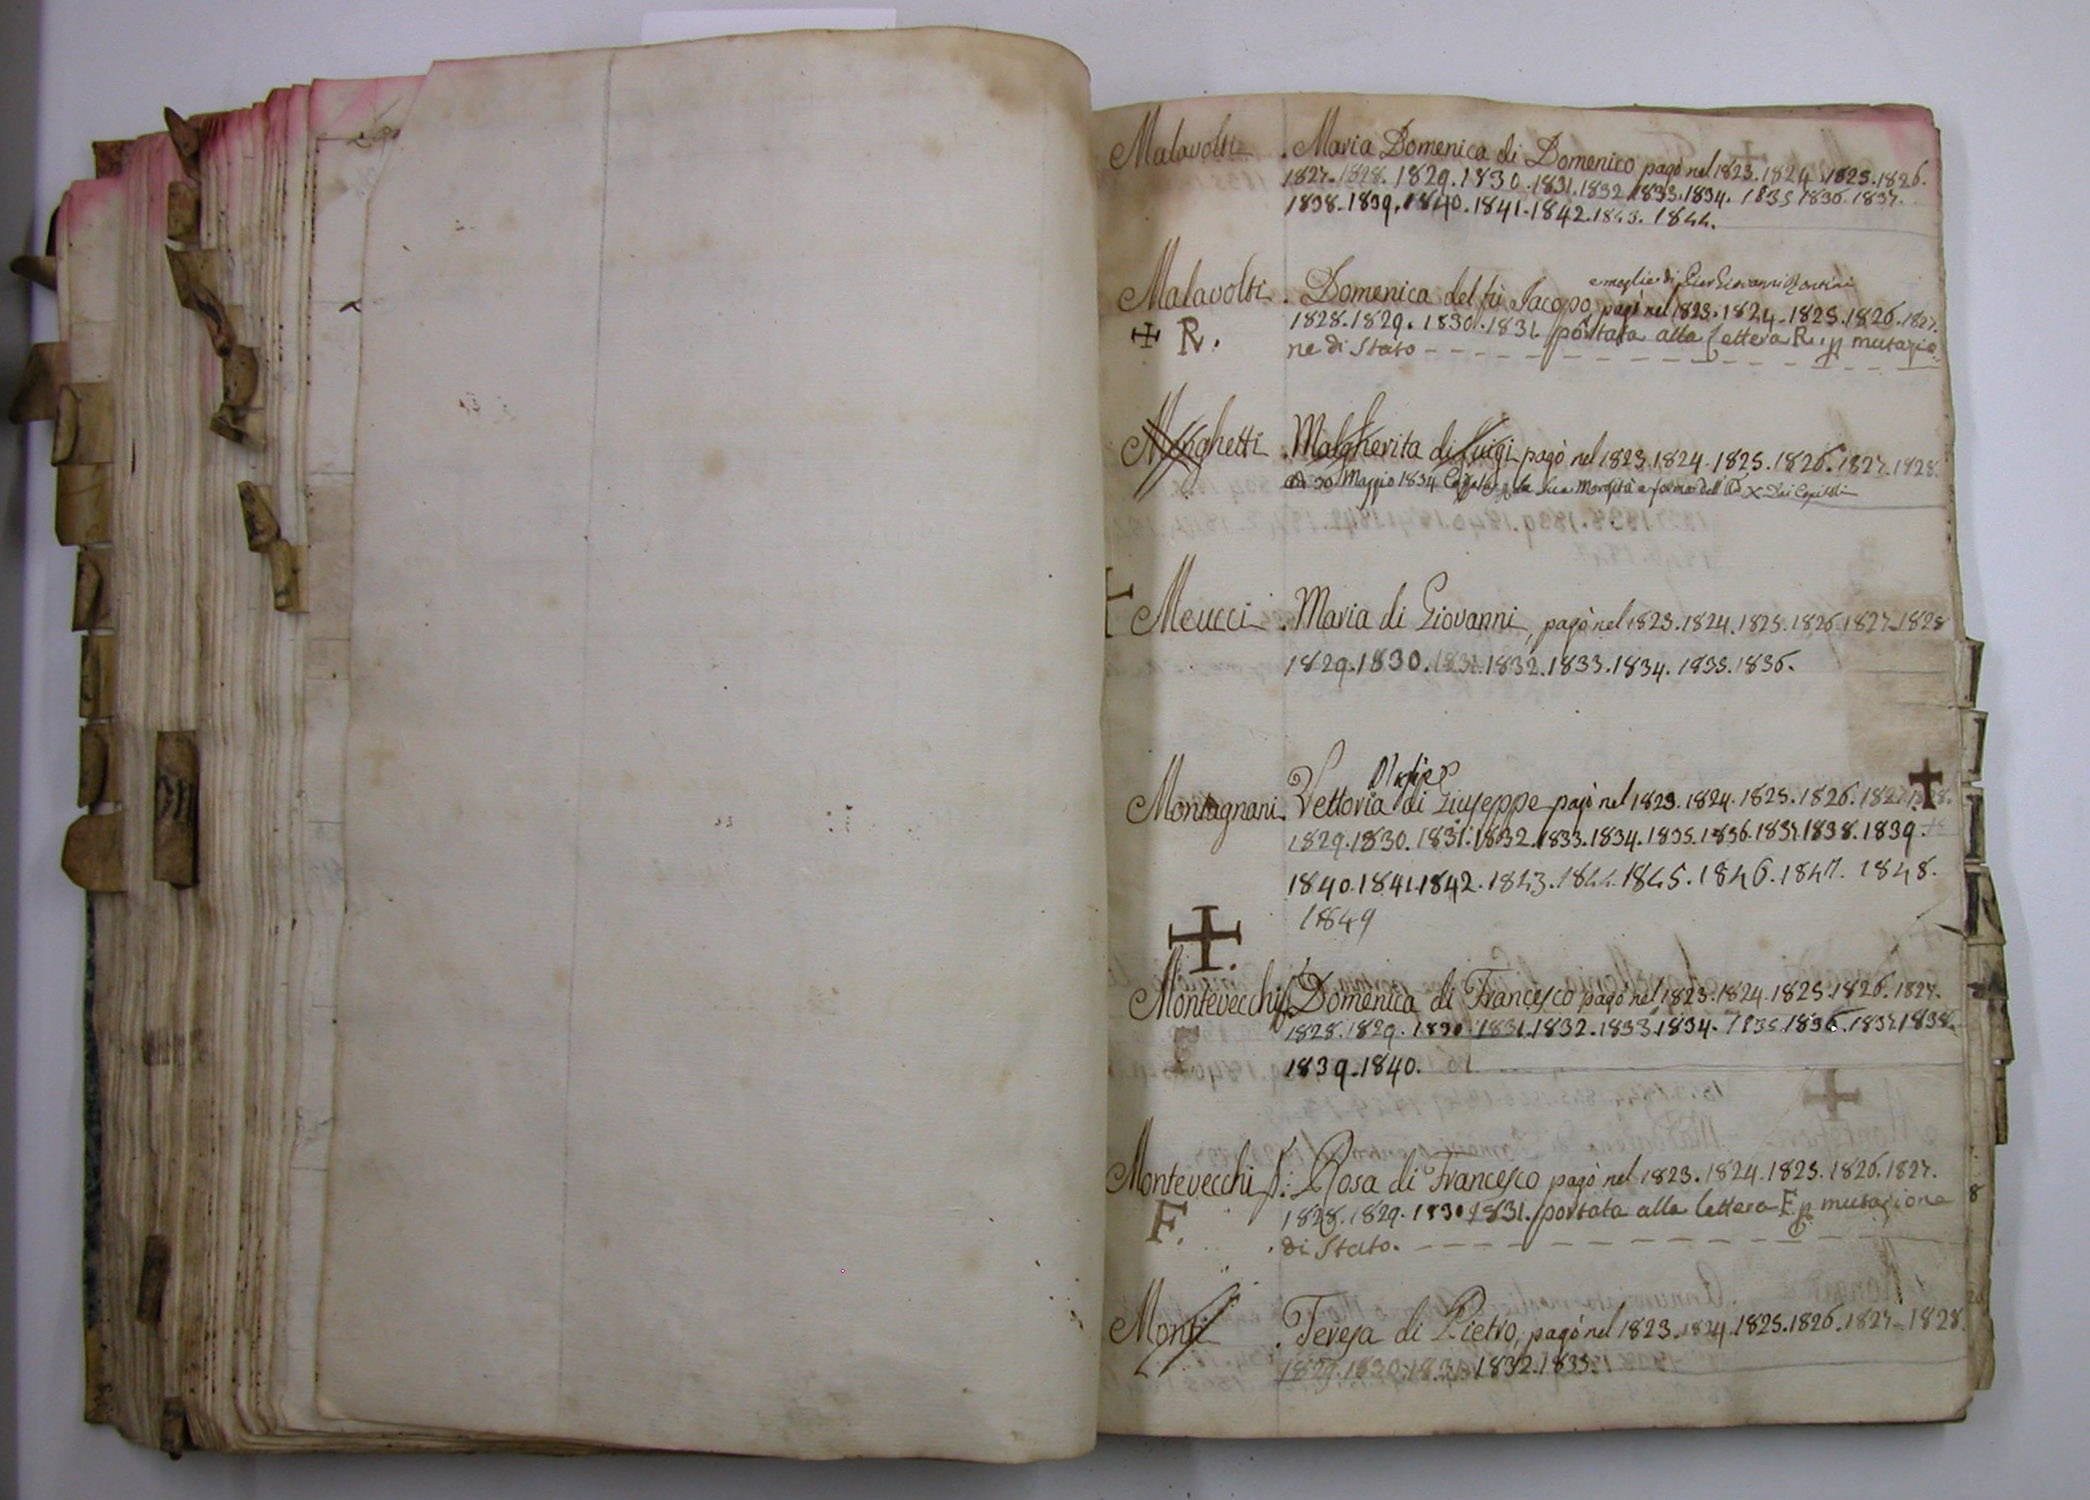 Malavolti . Maria Domenica di Domenico pagò nel 1823. 1824. 1825. 1826.
1827. 1828. 1829. 1830. 1831. 1832. 1833. 1834. 1835. 1836. 1837.
1838. 1839. 1840. 1841. 1842. 1843. 1844.
e moglie di Pier Giovanni
Malavolti . Domenica del fù Jacopo, pagò nel 1823. 1824. 1825. 1826. 1827.
+ R. 1828. 1829. 1830. 1831. portata alla lettera R. p mutazio-
ne di Stato
Menghetti . Malgherita di Luigi pagò nel 1823. 1824. 1825. 1826. 1827. 1828.
30 Maggio 1834 la sua Morosità a forma dell' X dei Capitoli
+ Meucci . Maria di Giovanni, pagò nel 1823. 1824. 1825. 1826. 1827. 1828
1829. 1830. 1831. 1832. 1833. 1834. 1835. 1836.
Montagnani . Vettoria di Giuseppe pagò nel 1823. 1824. 1825. 1826. 1827. 1828. +
1829. 1830. 1831. 1832. 1833. 1834. 1835. 1836. 1837. 1838. 1839.
1840. 1841. 1842. 1843. 1844. 1845. 1846. 1847. 1848.
1849
+
Montevecchi . Domenica di Francesco pagò nel 1823. 1824. 1825. 1826. 1827.
1828. 1829. 1830. 1831. 1832. 1833. 1834. 1835. 1836. 1837. 1838.
1839. 1840.
Montevecchi . Rosa di Francesco pagò nel 1823. 1824. 1825. 1826. 1827.
F. 1828. 1829. 1830. 1831. portata alla lettera F. p mutazione
di Stato.
Monti . Teresa di Pietro, pagò nel 1823. 1824. 1825. 1826. 1827. 1828.
1829. 1830. 1831. 1832. 1833.